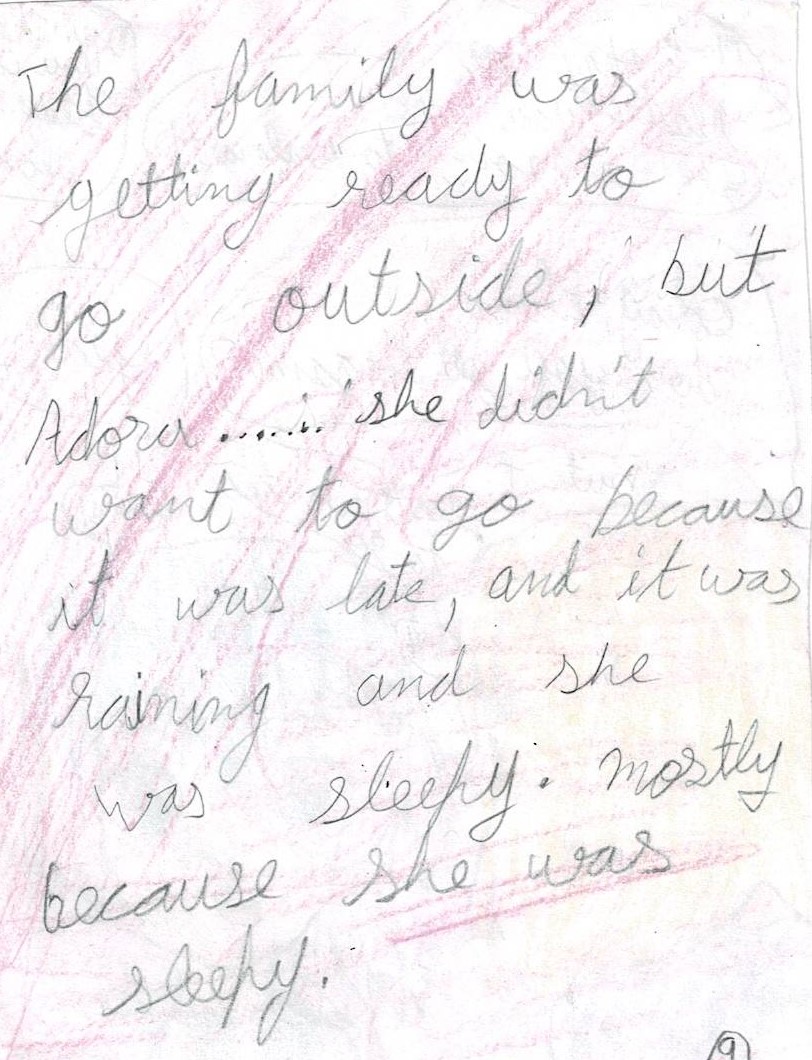 The family was
getting ready to
go outside, but
Adora ....... she didn't
want to go because
it was late, and it was
raining and she
was sleepy. Mostly
because she was
sleepy.
9